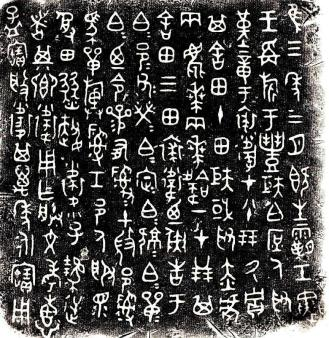 隹三年三月既生霸壬寅
王爯旂于豐矩白庶人取
堇章于裘衛才八十朋厥貯
其舍田十田矩或取赤虎
兩兩韐一才廿朋其
舍田三田裘衛乃彘告于
白邑父榮白定白白單
白乃令參有司司土微邑司
馬單司工邑人服眾
受田趞衛小子逆
者其鄉衛用乍朕文考惠
孟寶般衛其萬年永寶用